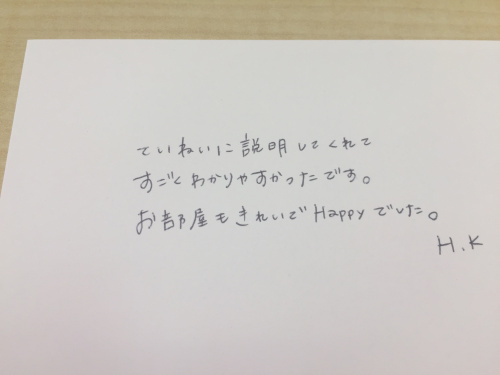 ていねいに説明してくれて
すごくわかりやすかったです。
お部屋もきれいでHappyでした。
H.K